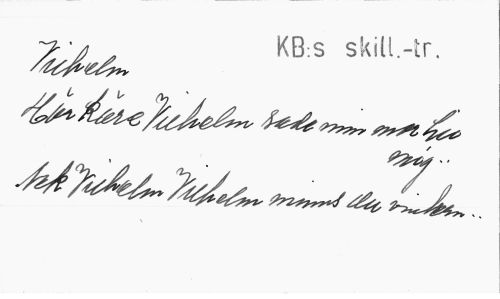 KB:s skill.-tr.
Vilhelm
Hör Käre Vilhelm sade min mor hu
mig..
Ack Vilhelm Vilhelm minns du vinkeln..